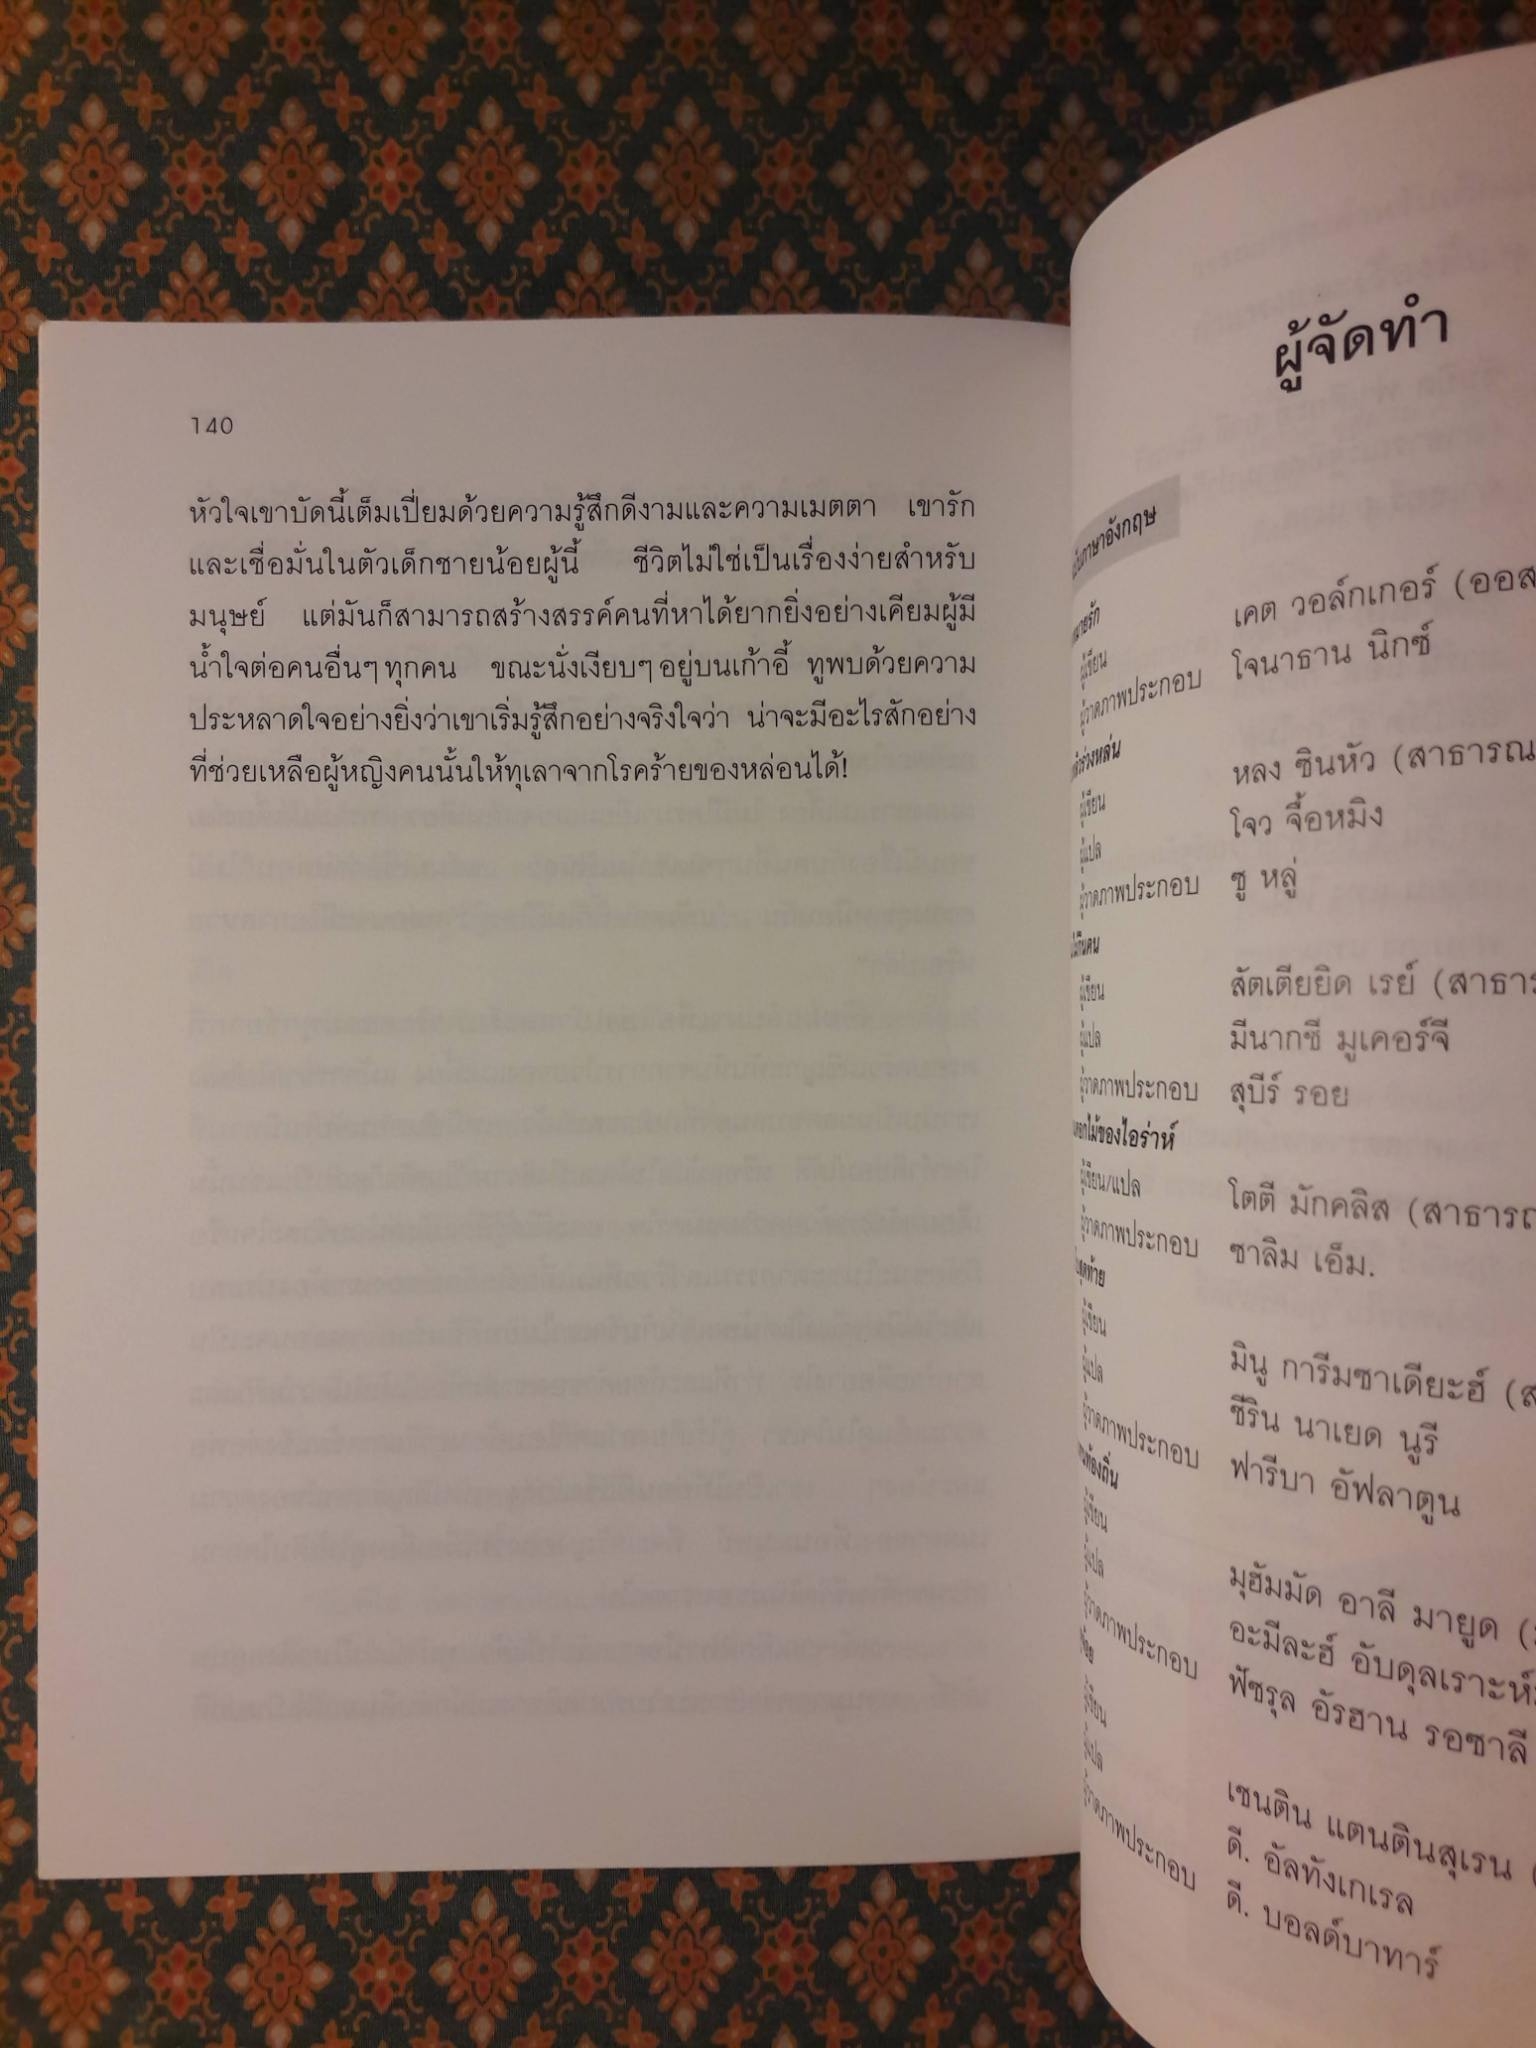 140
หัวใจเขาบัดนี้เต็มเปี่ยมด้วยความรู้สึกดีงามและความเมตตา เขารัก
และเชื่อมั่นในตัวเด็กชายน้อยผู้นี้ ชีวิตไม่ใช่เป็นเรื่องง่ายสำหรับ
มนุษย์ แต่มันก็สามารถสร้างสรรค์คนที่หาได้ยากยิ่งอย่างเคียมผู้มี
น้ำใจต่อคนอื่นๆ ทุกคน ขณะนั่งเงียบๆ อยู่บนเก้าอี้ ทูพบด้วยความ
ประหลาดใจอย่างยิ่งว่าเขาเริ่มรู้สึกอย่างจริงใจว่า น่าจะมีอะไรสักอย่าง
ที่ช่วยเหลือผู้หญิงคนนั้นให้ทุเลาจากโรคร้ายของหล่อนได้!
ผู้จัดทำ
ภาษาอังกฤษ
ผู้เขียน เคต วอล์กเกอร์ (ออส
ผู้วาดภาพประกอบ โจนาธาน นิกซ์
ร่วงหล่น
ผู้เขียน หลง ซินหัว (สาธารณ
ผู้แปล โจว จื้อหมิง
ผู้วาดภาพประกอบ ซู หลู่
กินคน
ผู้เขียน สัตเตียยิด เรย์ (สาธาร
ผู้แปล มีนากซี มูเคอร์จี
ผู้วาดภาพประกอบ สุบีร์ รอย
ดอกไม้ของไอร่าห์
ผู้เขียน/แปล โตตี มักคลิส (สาธารณ
ผู้วาดภาพประกอบ ซาลิม เอ็ม.
สุดท้าย
ผู้เขียน มินู การีมซาเดียะฮ์ (ส
ผู้แปล ชีริน นาเยด นูรี
ผู้วาดภาพประกอบ ฟารีบา อัฟลาตูน
ท้องถิ่น
ผู้เขียน มุฮัมมัด อาลี มายูด (
ผู้แปล อะมีละฮ์ อับดุลเราะห์
ผู้วาดภาพประกอบ ฟัซรุล อัรฮาน รอซาลี
ผู้เขียน เซนติน แตนตินสุเรน (
ผู้แปล ดี. อัลทังเกเรล
ผู้วาดภาพประกอบ ดี. บอลด์บาทาร์